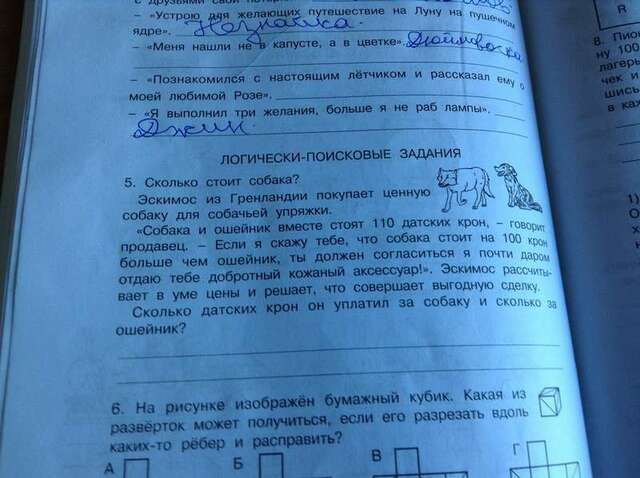 с друзьями свои
– «Устрою для желающих путешествие на Луну на пушечном
ядре». Незнайка.
– «Меня нашли не в капусте, а в цветке». Дюймовочка
– «Познакомился с настоящим лётчиком и рассказал ему о
моей любимой Розе».
– «Я выполнил три желания, больше я не раб лампы».
Джин.
ЛОГИЧЕСКИ-ПОИСКОВЫЕ ЗАДАНИЯ
5. Сколько стоит собака?
Эскимос из Гренландии покупает ценную
собаку для собачьей упряжки.
«Собака и ошейник вместе стоят 110 датских крон, – говорит
продавец. – Если я скажу тебе, что собака стоит на 100 крон
больше чем ошейник, ты должен согласиться я почти даром
отдаю тебе добротный кожаный аксессуар!». Эскимос рассчиты-
вает в уме цены и решает, что совершает выгодную сделку.
Сколько датских крон он уплатил за собаку и сколько за
ошейник?
6. На рисунке изображён бумажный кубик. Какая из
развёрток может получиться, если его разрезать вдоль
каких-то рёбер и расправить?
А Б В Г
R
8. Пион
ну 100
лагерь
чек и
шись
в каж
1)